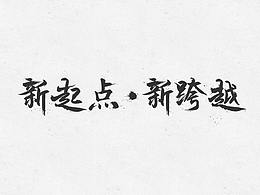 新起点·新跨越